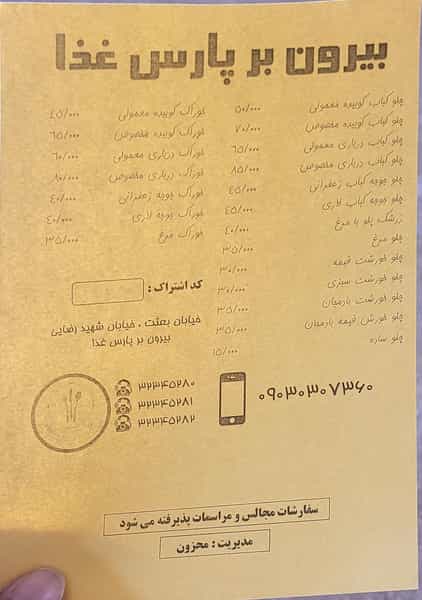 بیرون بر پارس غذا
چلو کباب کوبیده معمولی ۵۰/۰۰۰
چلو کباب کوبیده مخصوص ۷۰/۰۰۰
چلو کباب درباری معمولی ۶۵/۰۰۰
چلو کباب درباری مخصوص ۸۵/۰۰۰
چلو جوجه کباب زعفرانی ۴۵/۰۰۰
چلو جوجه کباب لاری ۴۵/۰۰۰
زرشک پلو با مرغ ۴۰/۰۰۰
چلو مرغ ۳۵/۰۰۰
چلو خورشت قیمه ۳۰/۰۰۰
چلو خورشت سبزی ۳۰/۰۰۰
چلو خورشت بادمجان ۳۵/۰۰۰
چلو خورش قیمه بادمجان ۳۵/۰۰۰
چلو ساده ۱۵/۰۰۰
خوراک کوبیده معمولی ۴۵/۰۰۰
خوراک کوبیده مخصوص ۶۵/۰۰۰
خوراک درباری معمولی ۶۰/۰۰۰
خوراک درباری مخصوص ۸۰/۰۰۰
خوراک جوجه زعفرانی ۴۰/۰۰۰
خوراک جوجه لاری ۴۰/۰۰۰
خوراک مرغ ۳۵/۰۰۰
کد اشتراک :
خیابان بعثت ، خیابان شهید رضایی
بیرون بر پارس غذا
۰۹۰۳۰۳۰۷۳۶۰
۳۲۳۴۵۲۸۰
۳۲۳۴۵۲۸۱
۳۲۳۴۵۲۸۲
سفارشات مجالس و مراسمات پذیرفته می شود
مدیریت : محزون